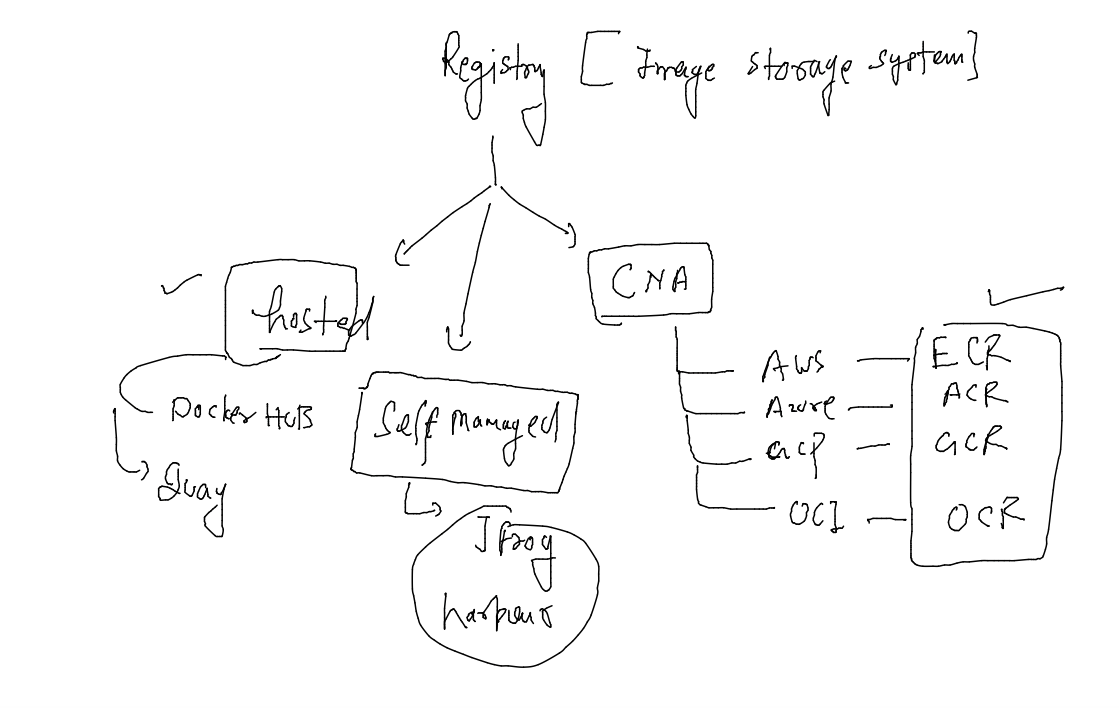 Registry [ Image storage system]
hosted
Docker HUB
Quay
Self Managed
Jfrog
CNA
AWS ECR
Azure ACR
GCP GCR
OCI OCR